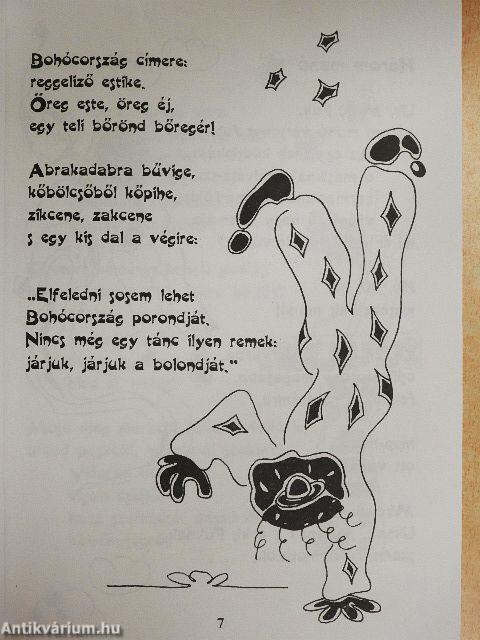 Bohócország címere:
reggeliző estike.
Öreg este, öreg éj,
egy teli bőrönd bőregér!
Abrakadabra bűvige,
kőbölcsőből kőpihe,
zikcene, zakcene
s egy kis dal a végire:
„Elfeledni sosem lehet
Bohócország porondját.
Nincs még egy tánc ilyen remek:
járjuk, járjuk a bolondját."
7
Antikvárium.hu